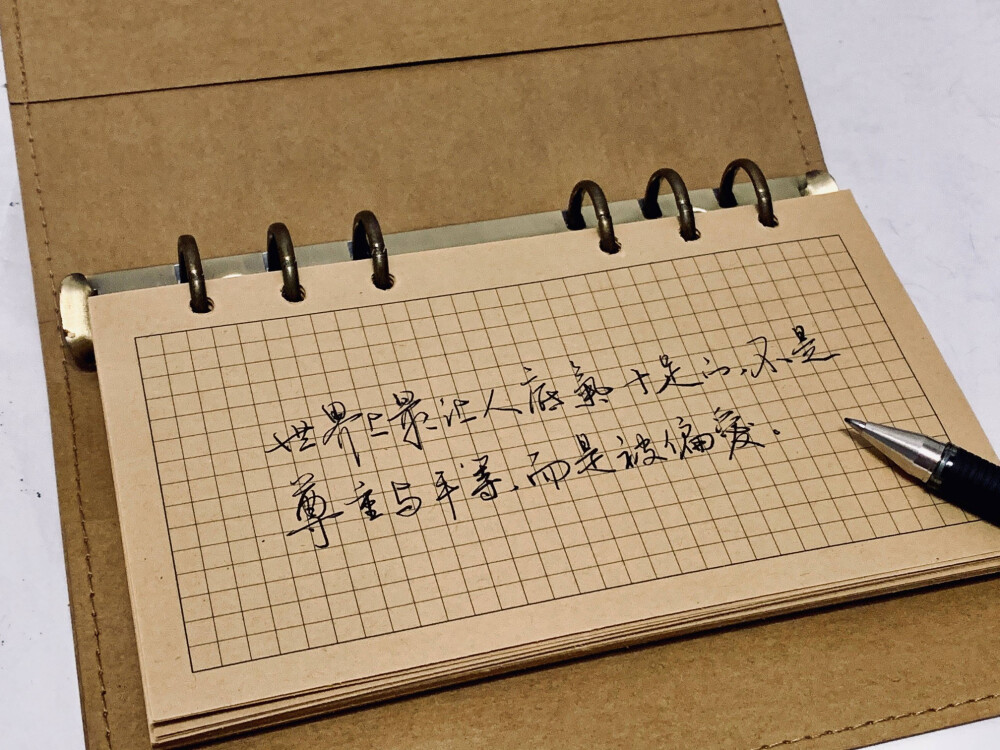 世界上最让人底氣十足的,不是
尊重与平等,而是被偏爱.